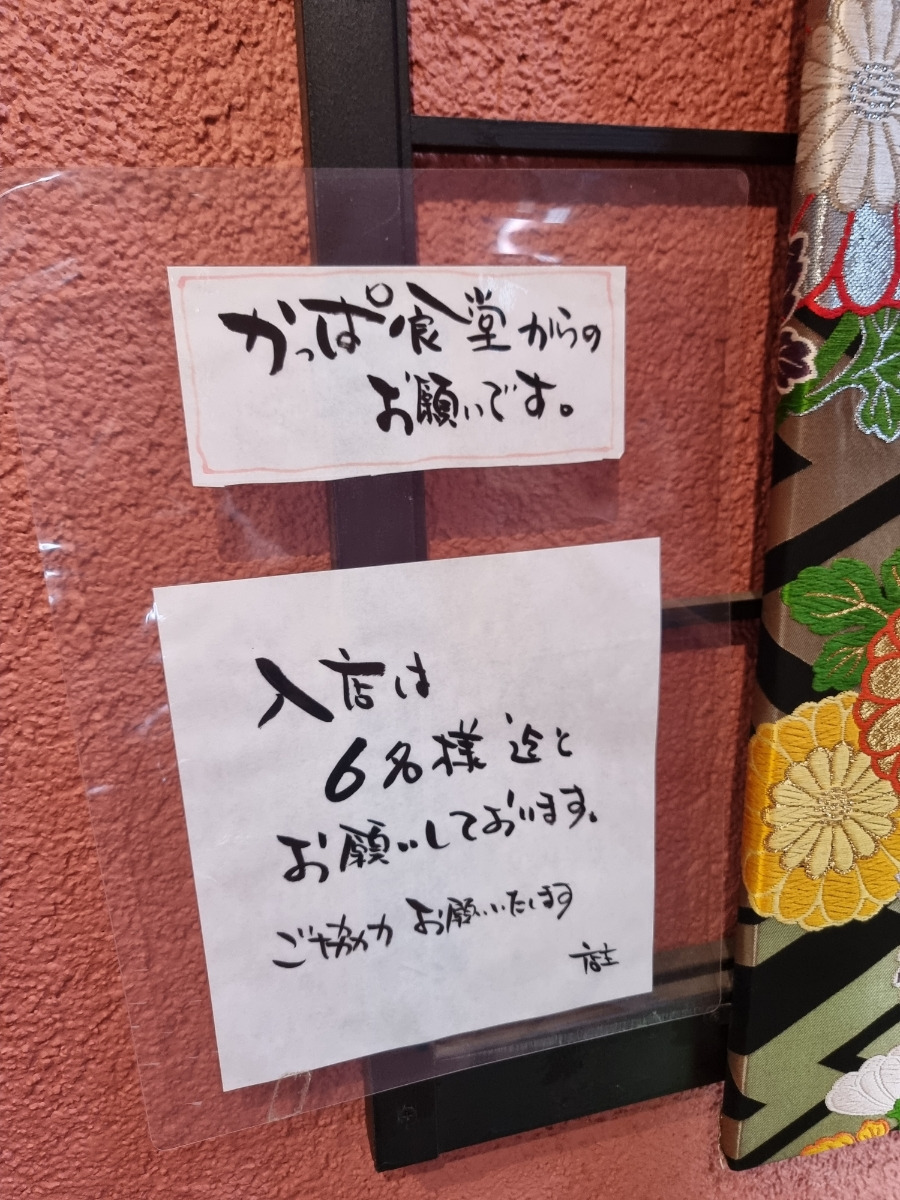 かっぱ食堂からの
お願いです。
入店は
6名様迄と
お願いしております。
ご協力 お願いいたします
店主